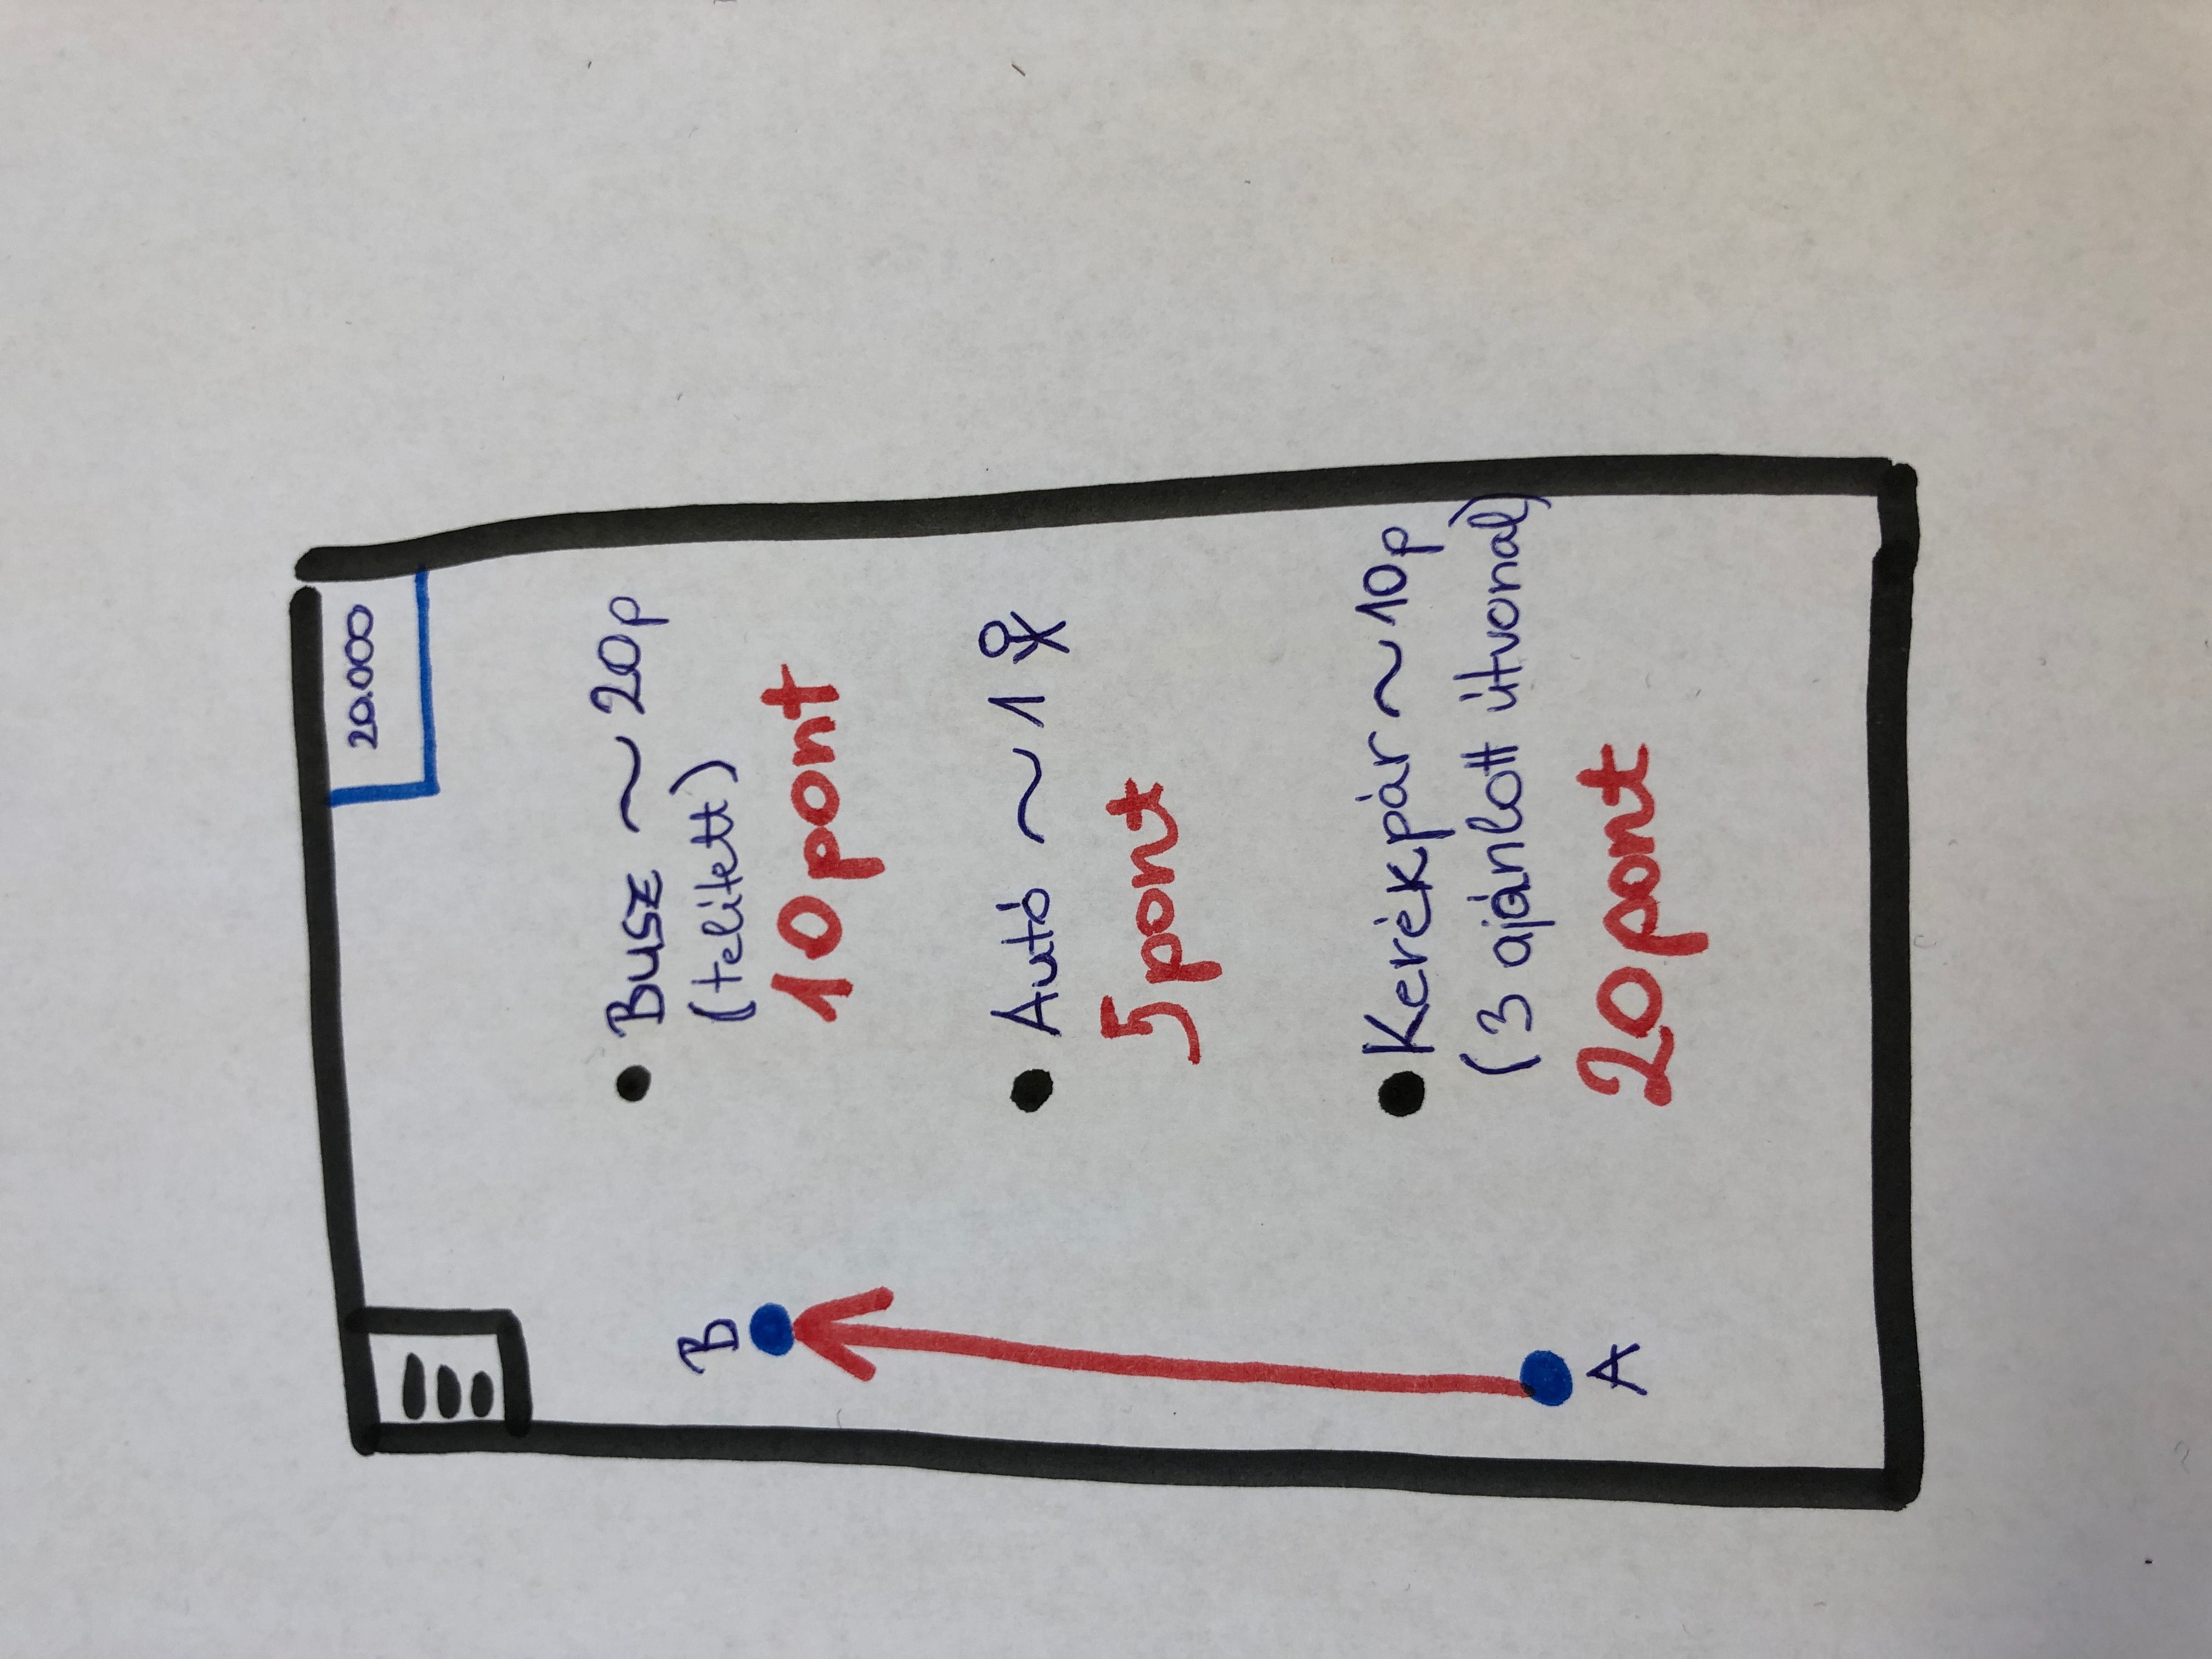 20.000
• Busz ~ 20p
(telített)
10 pont
B
• Autó ~ 1
5 pont
• Kerékpár ~ 10p
(3 ajánlott útvonal)
20 pont
A